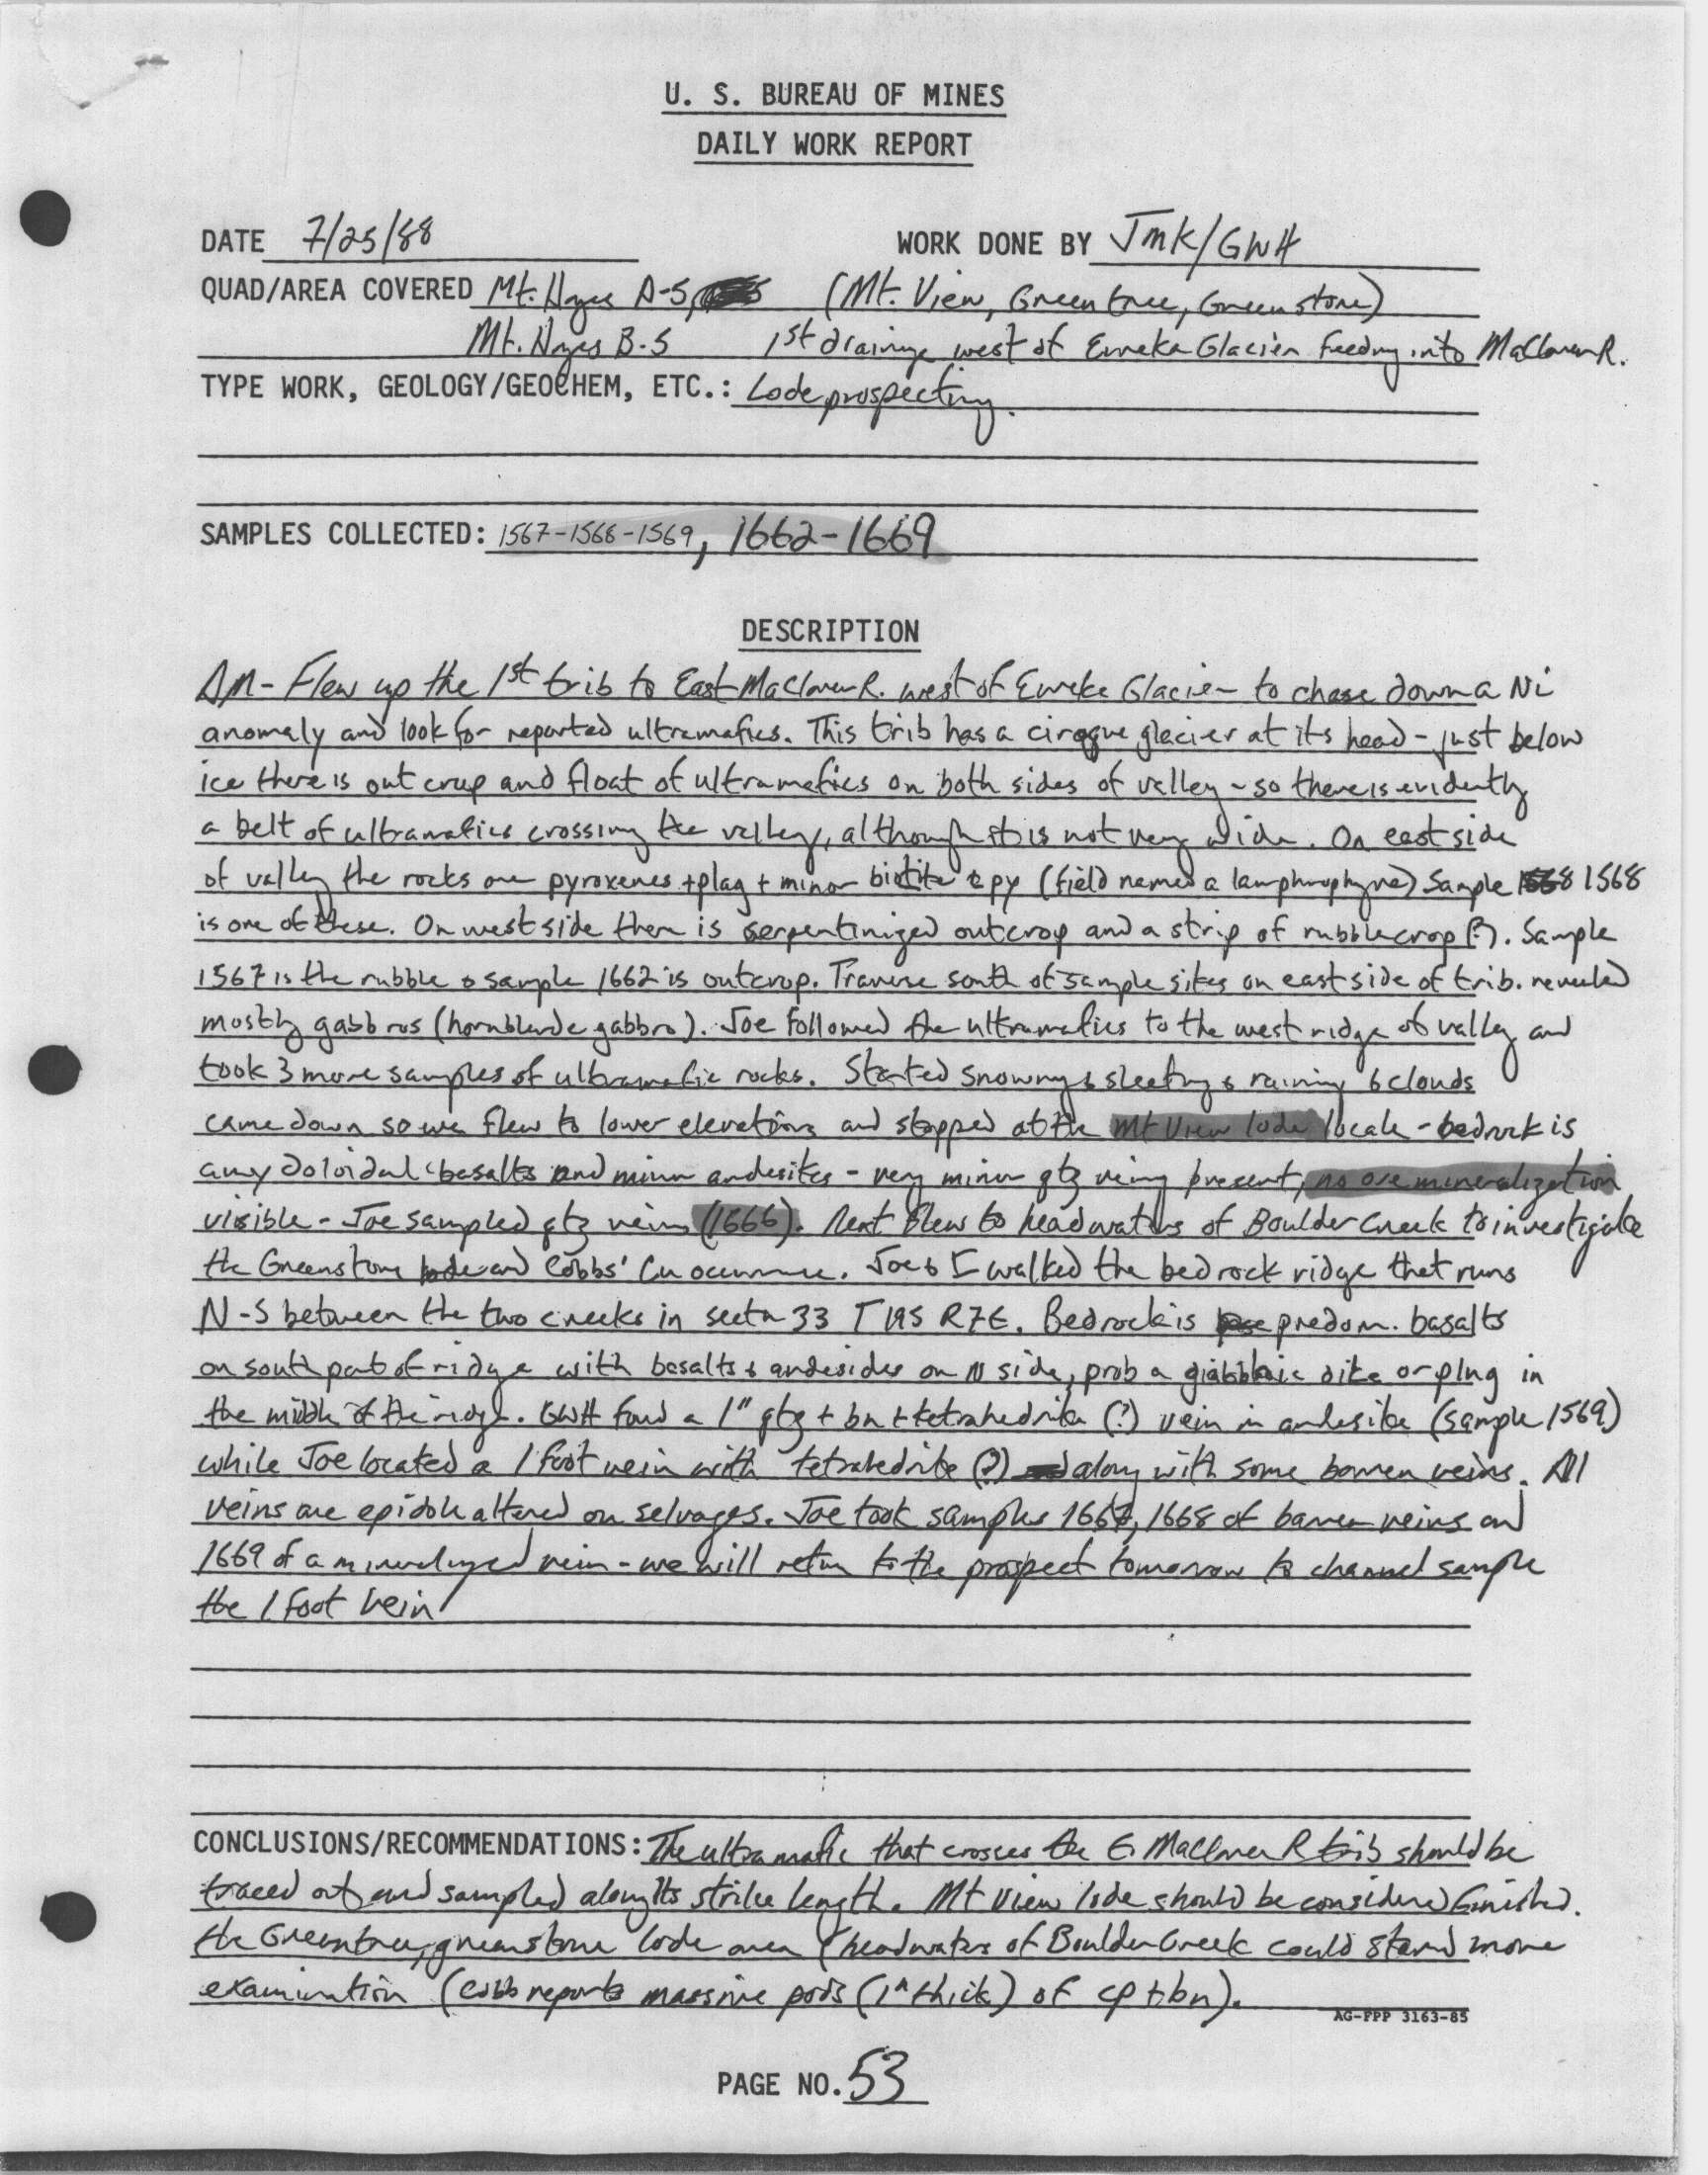 U. S. BUREAU OF MINES
DAILY WORK REPORT
DATE 7/25/88 WORK DONE BY JMK/GWH
QUAD/AREA COVERED Mt. Hayes A-5, (Mt. View, Greentree, Greenstone)
Mt. Hayes B-5 1st drainage west of Eureka Glacier feeding into Maclaren R.
TYPE WORK, GEOLOGY/GEOCHEM, ETC.: Lode prospecting.
SAMPLES COLLECTED: 1567-1568-1569, 1662-1669
DESCRIPTION
AM - Flew up the 1st trib to East Maclaren R. west of Eureka Glacier to chase down a Ni
anomaly and look for reported ultramafics. This trib has a cirque glacier at its head - just below
ice there is outcrop and float of ultramafics on both sides of valley - so there is evidently
a belt of ultramafics crossing the valley, although it is not very wide. On east side
of valley the rocks are pyroxenes + plag + minor biotite & py (field named a lamphrophyre) Sample 1568
is one of these. On west side there is serpentinized outcrop and a strip of rubblecrop (?). Sample
1567 is the rubble & sample 1662 is outcrop. Traverse south of sample sites on east side of trib. revealed
mostly gabbros (hornblende gabbro). Joe followed the ultramafics to the west ridge of valley and
took 3 more samples of ultramafic rocks. Started snowing & sleeting & raining & clouds
came down so we flew to lower elevations and stopped at the Mt View lode locale - bedrock is
amydoloidal basalts and minor andesites - very minor qtz veins present, no ore mineralization
visible - Joe sampled qtz veins (1666). Next flew to headwaters of Boulder Creek to investigate
the Greenstone lode and Cobbs' Cu occurrence. Joe & I walked the bedrock ridge that runs
N-S between the two creeks in sectn 33 T19S R7E. Bedrock is predom. basalts
on south part of ridge with basalts & andesides on N side, prob a gabbroic dike or plug in
the middle of the ridge. GWH found a 1" qtz + bn + tetrahedrite (?) vein in andesite (sample 1569)
while Joe located a 1 foot vein with tetrahedrite (?) along with some barren veins. All
veins are epidote altered on selvages. Joe took samples 1667, 1668 of barren veins and
1669 of a mineralized vein - we will return to the prospect tomorrow to channel sample
the 1 foot vein
CONCLUSIONS/RECOMMENDATIONS: The ultramafic that crosses the E. Maclaren R trib should be
traced out and sampled along its strike length. Mt View lode should be considered finished.
the Greentree, greenstone lode area & headwaters of Boulder Creek could stand more
examination (Cobb reports massive pods (1" thick) of cp + bn).
AG-FPP 3163-85
PAGE NO. 53